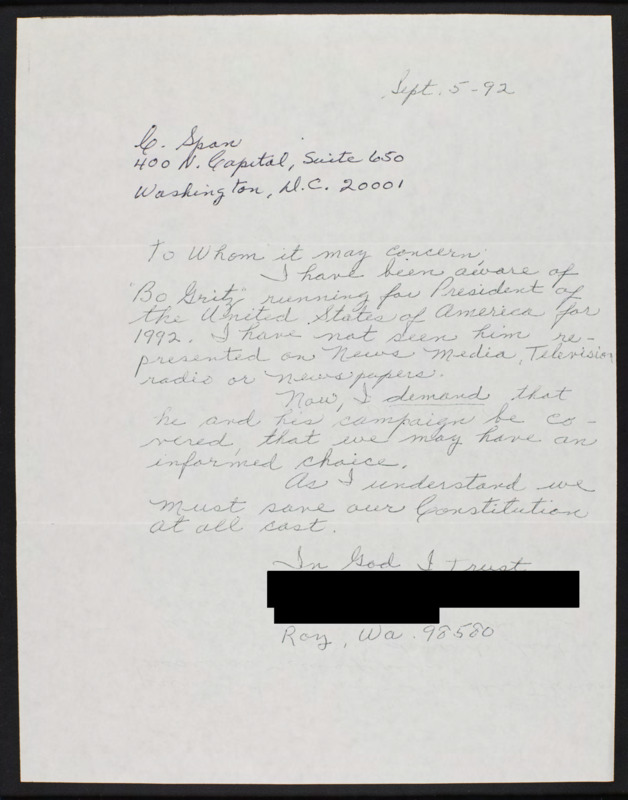 Sept. 5-92
C. Span
400 N. Capital, Suite 650
Washington, D.C. 20001
To Whom it may concern,
I have been aware of
"Bo Gritz" running for President of
the United States of America for
1992. I have not seen him re-
presented on News Media, Television
radio or newspapers.
Now, I demand that
he and his campaign be co-
vered, that we may have an
informed choice.
As I understand we
must save our Constitution
at all cost.
In God I trust
Roy, Wa. 98580